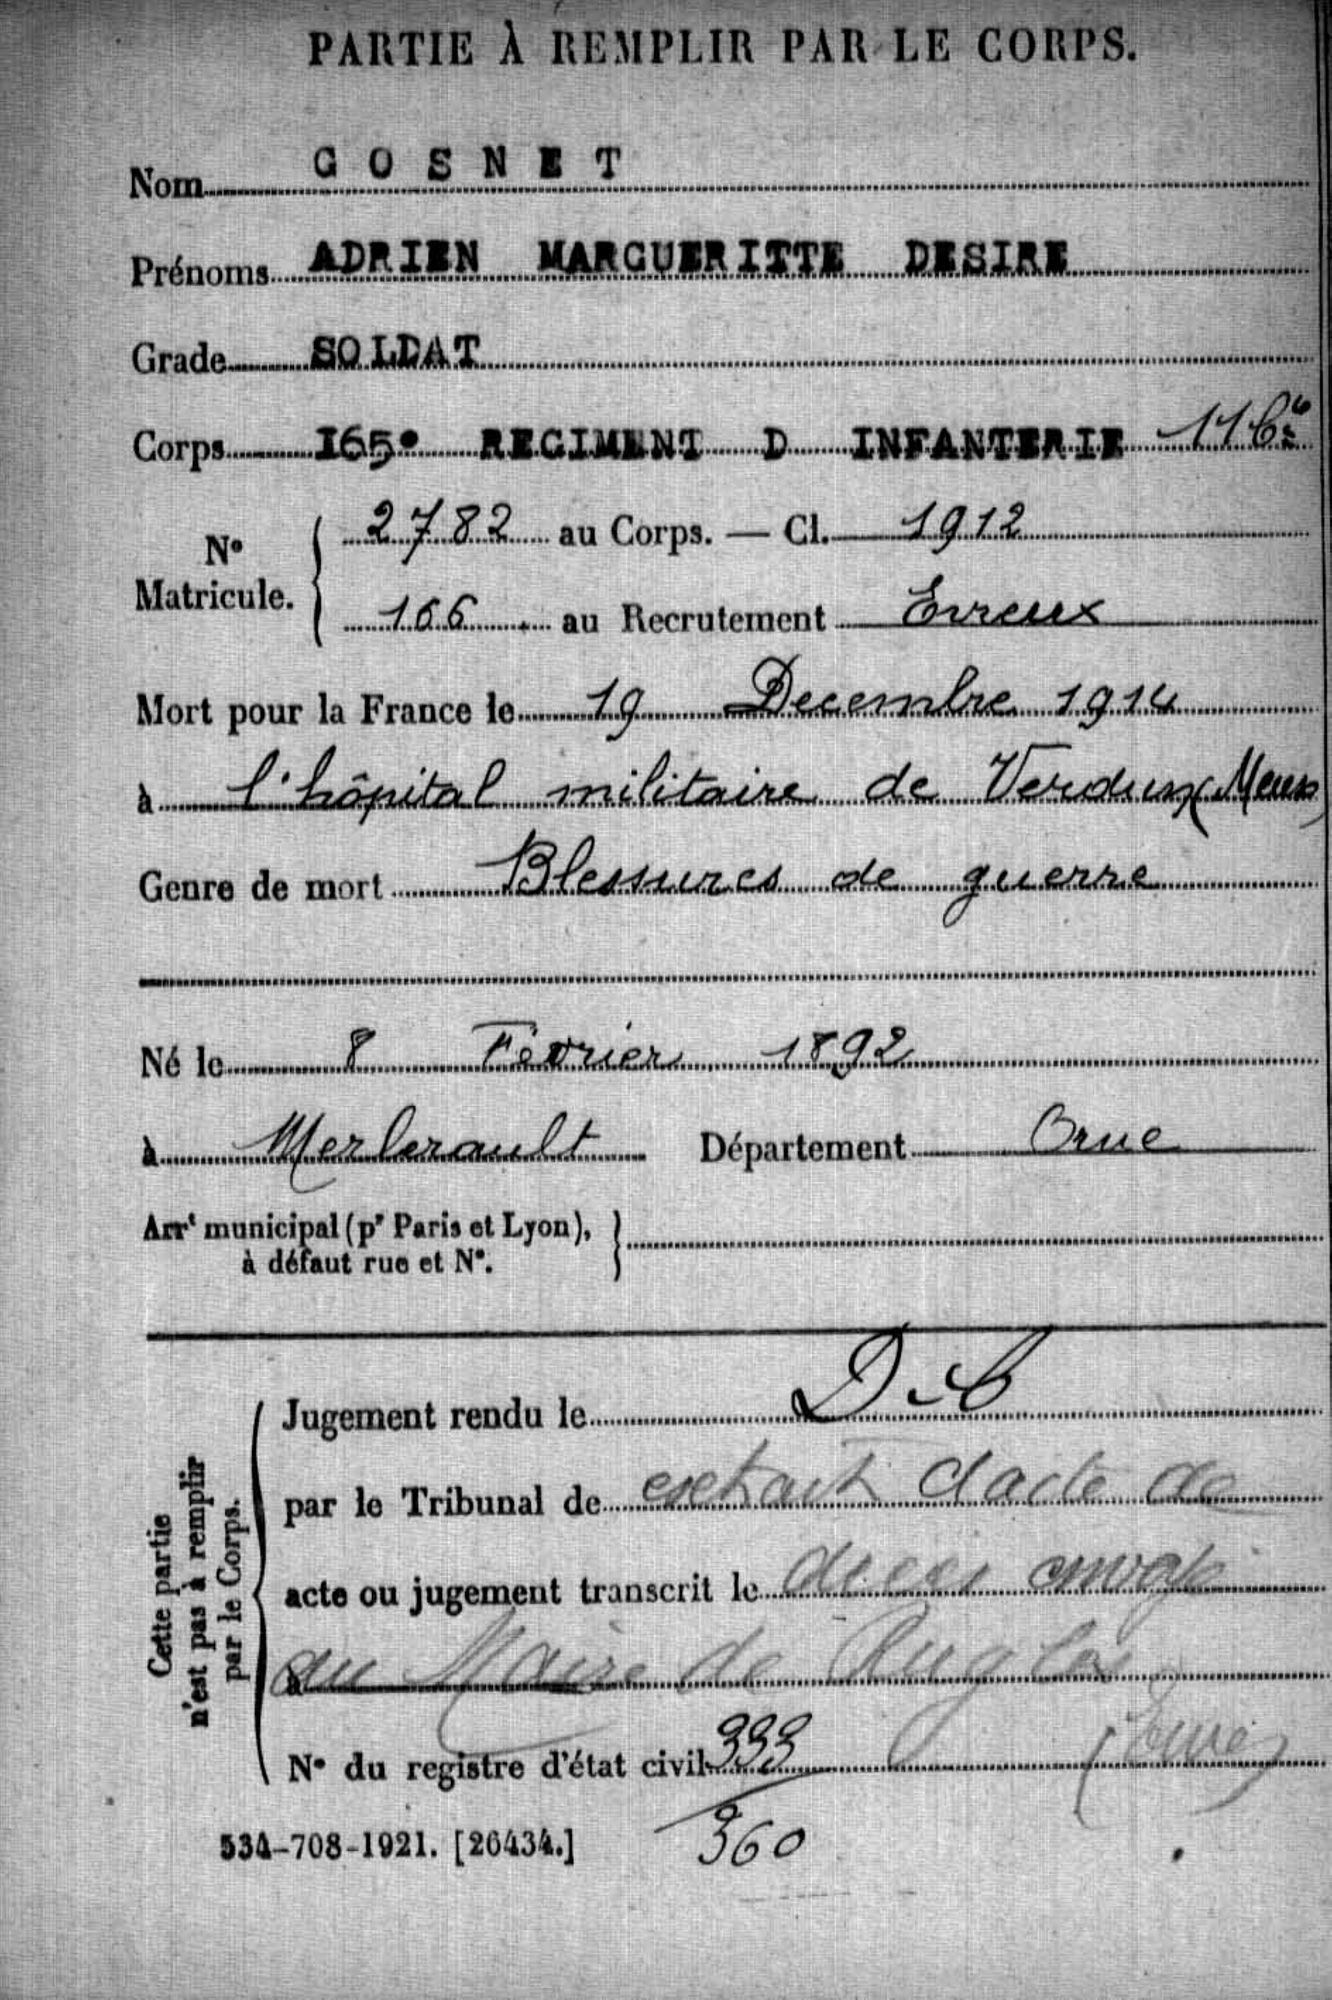 PARTIE À REMPLIR PAR LE CORPS.
Nom GOSNET
Prénoms ADRIEN MARGUERITTE DESIRE
Grade SOLDAT
Corps I65e REGIMENT D INFANTERIE 11 Cie
2782 au Corps. — Cl. 1912
N° Matricule.
166 au Recrutement Evreux
Mort pour la France le 19 Decembre 1914
à l'hôpital militaire de Verdun (Meuse)
Genre de mort Blessures de guerre
Né le 8 Février 1892
à Merlerault Département Orne
Arrt municipal (pr Paris et Lyon),
à défaut rue et N°.
Cette partie
n'est pas à remplir
par le Corps.
Jugement rendu le D
par le Tribunal de extrait d'acte de
acte ou jugement transcrit le décès envoyé
à au Maire de Rugles
N° du registre d'état civil 333 (Eure)
360
534-708-1921. [26434.]